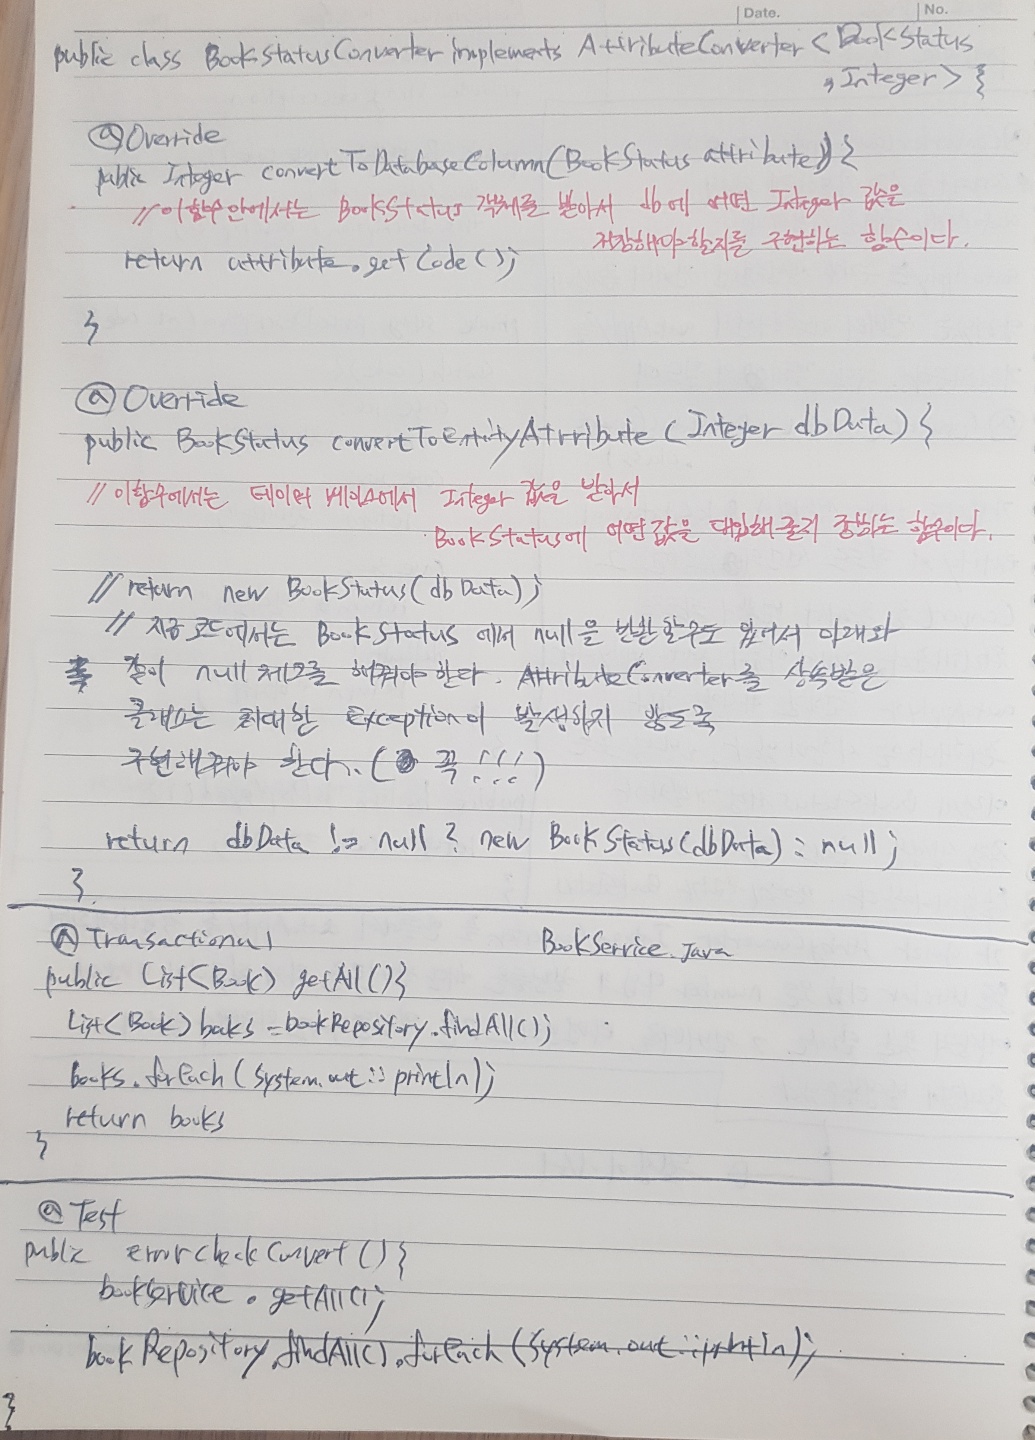 Date.
No.
public class BookStatusConverter implements AttributeConverter<BookStatus
,Integer> {
@Override
public Integer convertToDatabaseColumn(BookStatus attribute){
//이함수안에서는 BookStatus 객체를 받아서 db에 어떤 Integer 값을
저장해야할지를 구현하는 함수이다.
return attribute.getCode();
}
@Override
public BookStatus convertToEntityAttribute (Integer dbData) {
// 이함수에서는 데이터 베이스에서 Integer 값을 받아서
BookStatus에 어떤값을 대입해줄지 정하는 함수이다.
// return new BookStatus(dbData);
// 지금 코드에서는 BookStatus 에서 null을 반환할수도 있어서 아래와
같이 null 체크를 해줘야 한다. AttributeConverter를 상속받은
클래스는 최대한 Exception이 발생하지 않도록
구현해줘야 한다. ( 꼭 !!!)
return dbData != null ? new BookStatus(dbData) : null;
}
@Transactional
BookService.java
public List<Book> getAll(){
List<Book> books = bookRepository.findAll();
books.forEach(System.out::println);
return books
}
@Test
public errorcheckConvert(){
bookService.getAll();
bookRepository.findAll().forEach(System.out::println);
}